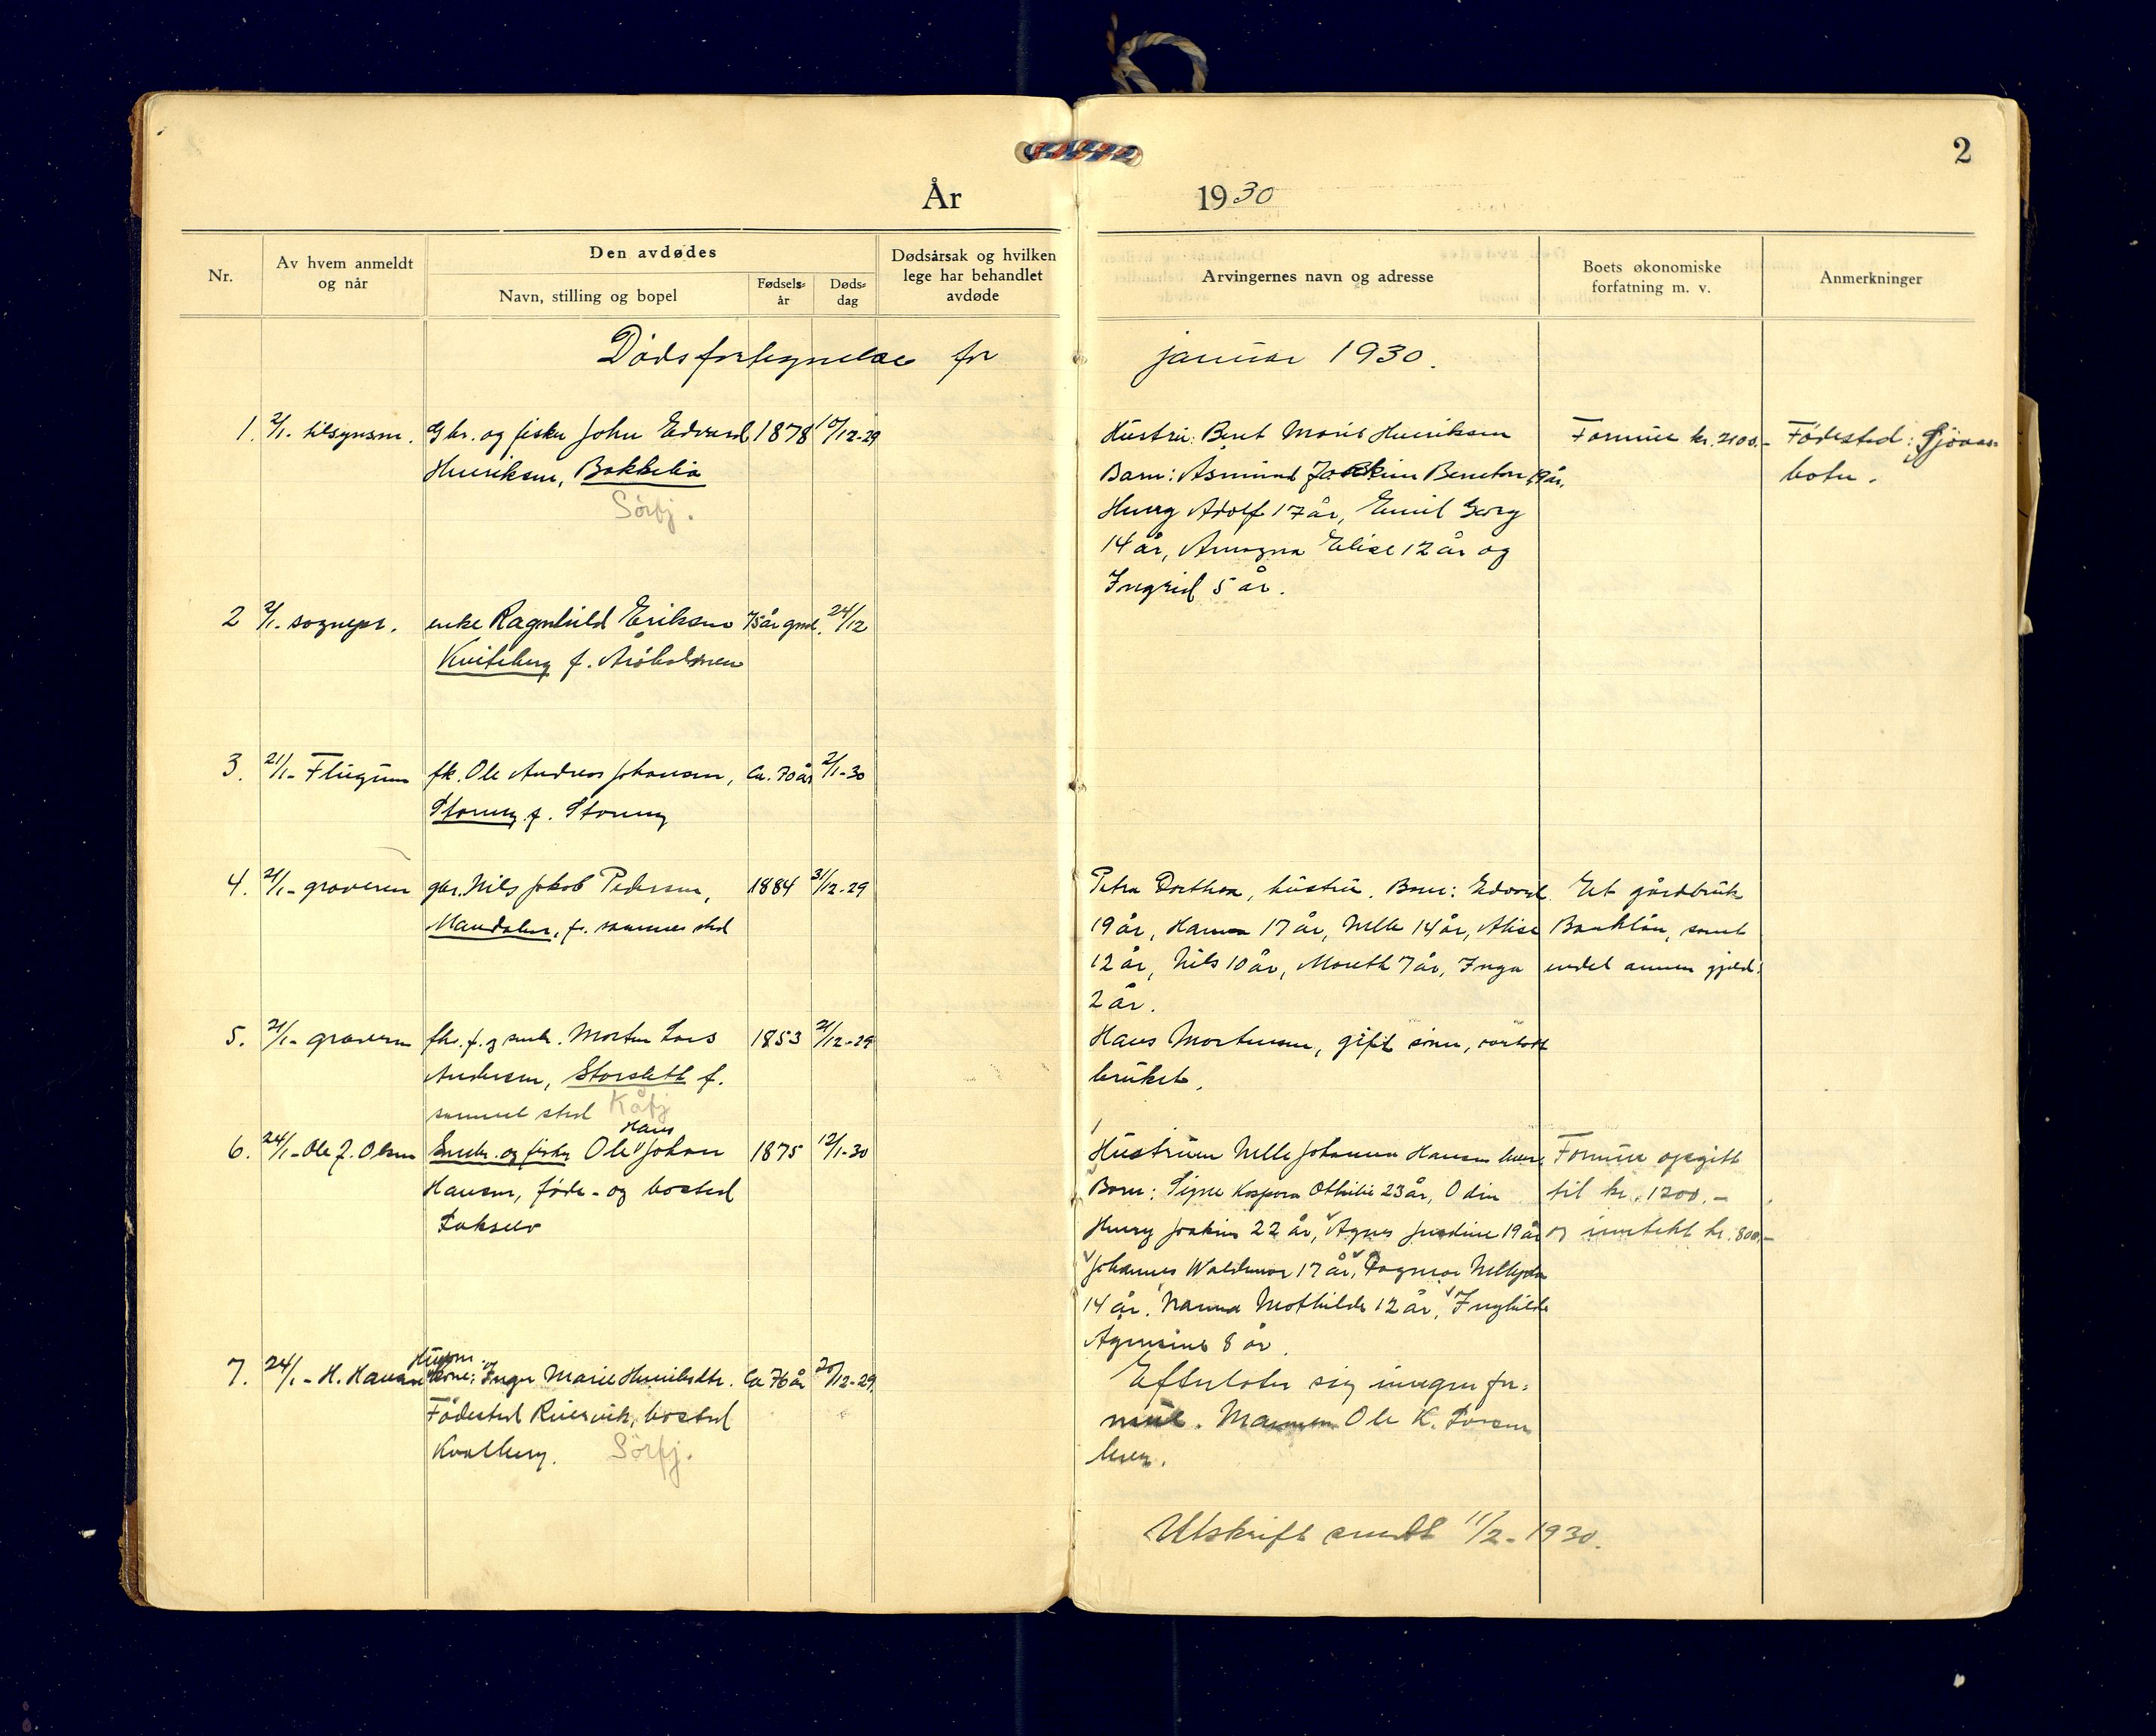 2
År 1930
Nr.
Av hvem anmeldt
og når
Den avdødes
Navn, stilling og bopel
Fødsels-
år
Døds-
dag
Dødsårsak og hvilken
lege har behandlet
avdøde
Arvingernes navn og adresse
Boets økonomiske
forfatning m. v.
Anmerkninger
Dødsfortegnelse for januar 1930.
1. 2/1. tilsynsm. Gbr. og fisker John Edvard 1878 10/12-29
Henriksen, Bakkelia
Sörfj.
Hustru: Beret Marie Henriksen
Barn: Asmund Joakim Beneton 19 år,
Henry Adolf 17 år, Emil Georg
14 år, Elise 12 år og
Ingrid 5 år.
Formue kr. 2100.-
Födested:
botn.
2 2/1. sognepr. enke Ragnhild Eriksen 75 år gml. 24/12
Kviteberg f. Åröholmen
3. 21/1- Flugum fk. Ole Andreas Johansen, ca. 70 år 2/1-30
f.
4. 21/1- graveren gbr. Nils Jakob Pedersen, 1884 31/12-29
Mandalen, f. sammes sted
Petra Dorthea, hustru. Barn: Edvard
19 år, Hanna 17 år, Nelle 14 år, Alise
12 år, Nils 10 år, Mareth 7 år, Inga
2 år.
Et gårdbruk
Banklån, samt
endel annen gjeld.
5. 21/1- graveren fhv. f. og småbr. Morten Lars 1853 21/12-29
Andersen, Storslett f.
samme sted Kåfj
Hans Mortensen, gift sönn, overtatt
bruket.
6. 24/1- Ole J. Olsen Småbr. og fisker Ole Hans Johan 1875 12/1-30
Hansen, föde- og bosted
Lakselv
Hustruen Nelle Johanna Hansen lever.
Barn: Signe Kaspara Othilie 23 år, Odin
Henry Joakim 22 år, Agnes Jusdine 19 år
Johannes Waldemar 17 år, Dagmar
14 år. Nanna Mathilde 12 år, Inghilde
8 år.
Formue opgitt
til kr. 1200.-
og inntekt kr. 800.-
7. 24/1- H. Hansen kone: Inger Marie Henriksdtr. Ca 76 år 20/12-29.
Födested bosted
Kvalberg. Sörfj.
Efterlater sig ingen for-
mue. Mannen Ole K. Larsen
lever.
Utskrift sendt 11/2-1930.